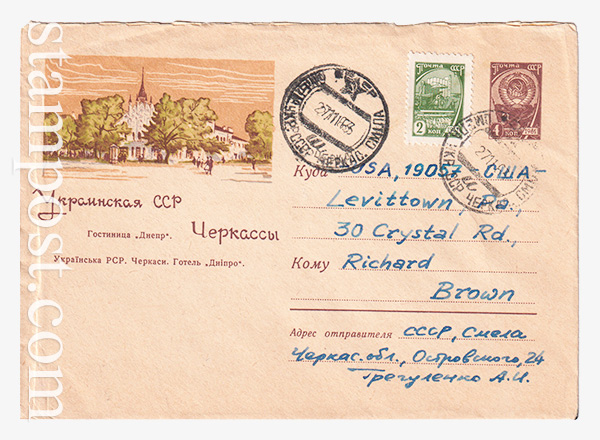 stampost.com
Украинская ССР
Черкассы
Гостиница „Днепр“.
Українська РСР. Черкаси. Готель „Дніпро“.
ПОЧТА СССР
2
КОП
ПОЧТА СССР
4
КОП
СМЕЛА ЧЕРКАС
Куда USA, 19057 США-
Levittown, Pa,
30 Crystal Rd.,
Кому Richard
Brown
Адрес отправителя СССР, Смела
Черкас. обл., Островского, 24
Грегуленко А.И.